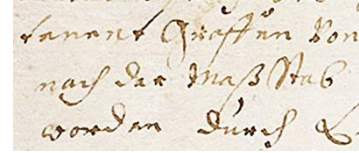 tenent Graffen Von
nach der Maß Stab
worden durch